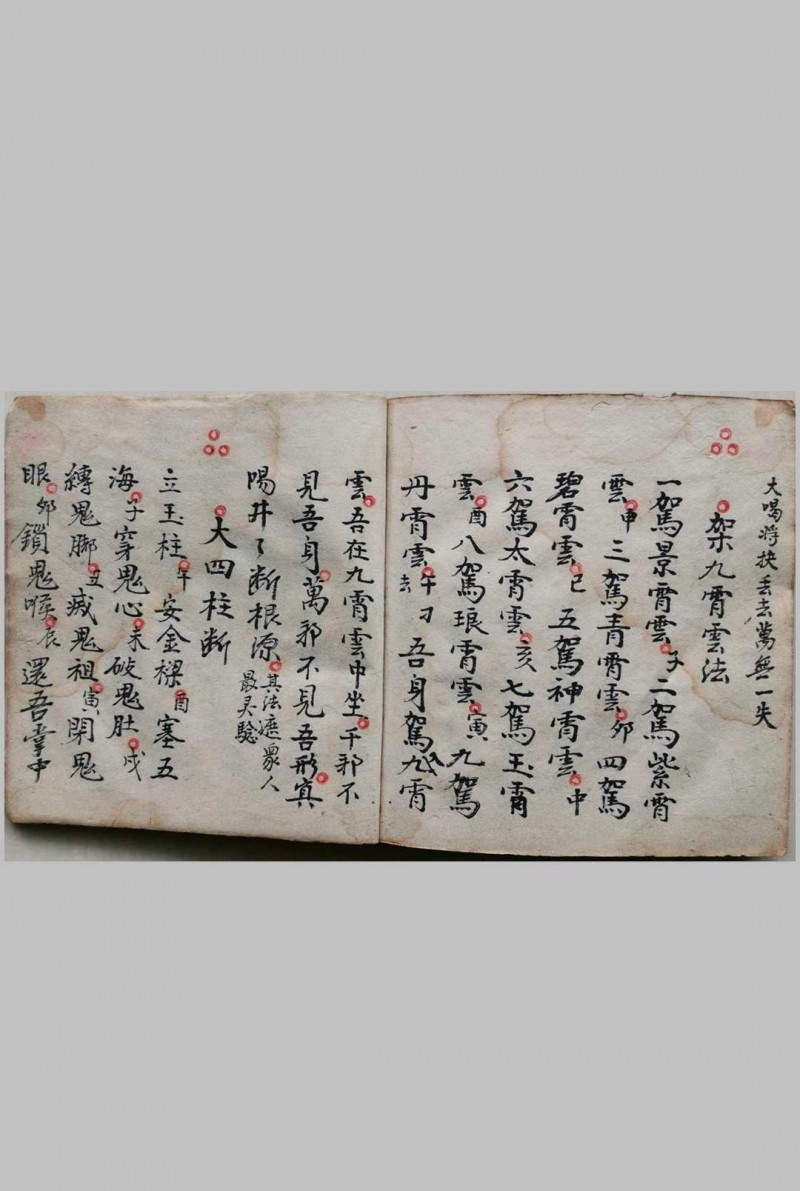 大喝将抉丢去萬無一失
架九霄雲法
一駕景霄雲子二駕紫霄
雲申三駕青霄雲卯四駕
碧霄雲巳五駕神霄雲中
六駕太霄雲亥七駕玉霄
雲酉八駕琅霄雲寅九駕
丹霄雲午刁吾身駕九霄
去
雲吾在九霄雲中坐千邪不
見吾身萬邪不見吾形寘
陽井了断根源其法遮眾人
最灵騐
大四柱断
立玉柱午安金樑酉塞五
海子穿鬼心未破鬼肚戌
縛鬼脚丑滅鬼祖寅閉鬼
眼卯鎖鬼喉辰還吾掌中